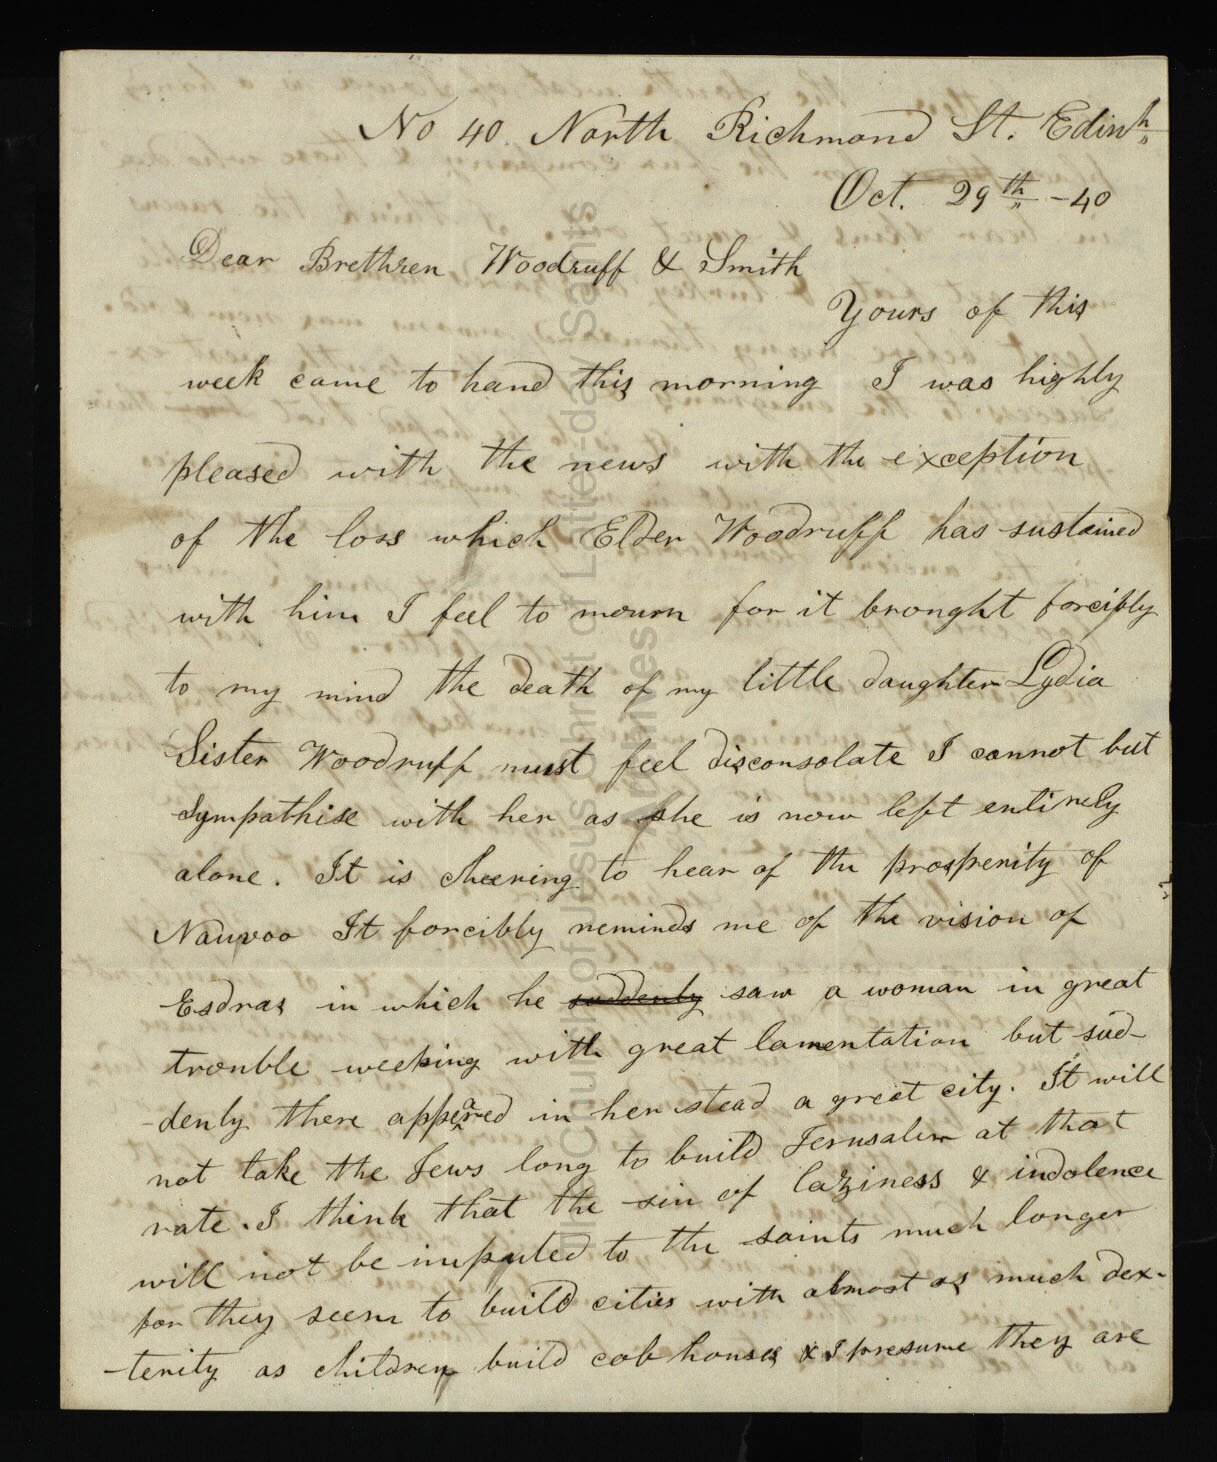 No 40. North Richmond St. Edinh
Oct. 29th - 40
Dear Brethren Woodruff & Smith
Yours of this
week came to hand this morning I was highly
pleased with the news with the exception
of the loss which Elder Woodruff has sustained
with him I feel to mourn for it brought forcibly
to my mind the death of my little daughter Lydia
Sister Woodruff must feel disconsolate I cannot but
sympathise with her as she is now left entirely
alone. It is cheering to hear of the prosperity of
Nauvoo It forcibly reminds me of the vision of
Esdras in which he suddenly saw a woman in great
trouble weeping with great lamentation but sud-
-denly there appeared in her stead a great city. It will
not take the Jews long to build Jerusalem at that
rate. I think that the sin of laziness & indolence
will not be imputed to the saints much longer
for they seem to build cities with almost as much dex-
-terity as children build cob houses & I presume they are
The Church of Jesus Christ of Latter-day Saints
Archives